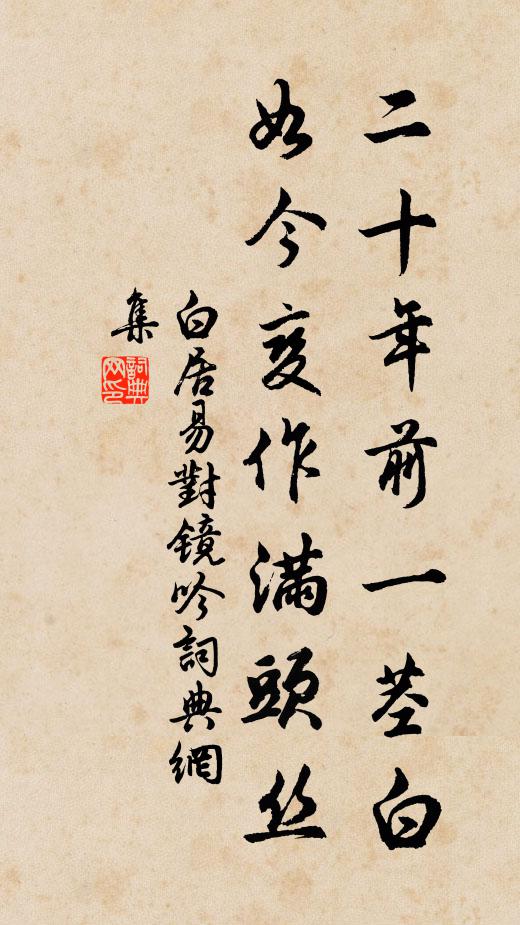 二十年前一茎白
如今变作滿頭丝
白居易對镜吟詞典網
集
詞典网印